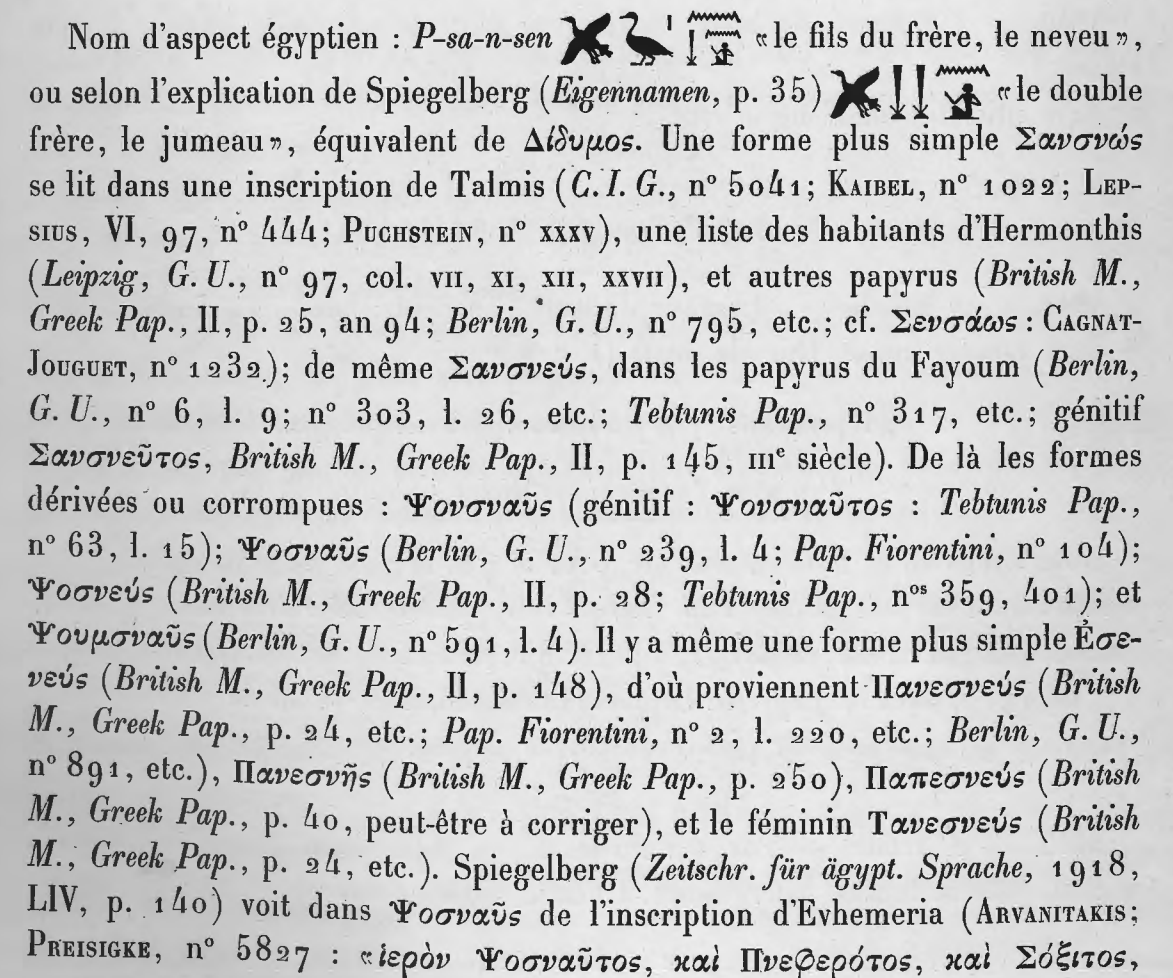 Nom d'aspect égyptien : P-sa-n-sen 𓅮𓅭𓏤𓌢𓈖𓈖𓀀 «le fils du frère, le neveu»,
ou selon l'explication de Spiegelberg (Eigennamen, p. 35) 𓅮𓌢𓌢𓈖𓀀 «le double
frère, le jumeau», équivalent de Δίδυμος. Une forme plus simple Σανσνώς
se lit dans une inscription de Talmis (C. I. G., n° 5041; KAIBEL, n° 1022; LEP-
SIUS, VI, 97, n° 444; PUCHSTEIN, n° XXXV), une liste des habitants d'Hermonthis
(Leipzig, G. U., n° 97, col. VII, XI, XII, XXVII), et autres papyrus (British M.,
Greek Pap., II, p. 25, an 94; Berlin, G. U., n° 795, etc.; cf. Σενσάως : CAGNAT-
JOUGUET, n° 1232); de même Σανσνεύς, dans les papyrus du Fayoum (Berlin,
G. U., n° 6, l. 9; n° 303, l. 26, etc.; Tebtunis Pap., n° 317, etc.; génitif
Σανσνεῦτος, British M., Greek Pap., II, p. 145, IIIe siècle). De là les formes
dérivées ou corrompues : Ψουσναῦς (génitif : Ψουσναῦτος : Tebtunis Pap.,
n° 63, l. 15); Ψοσναῦς (Berlin, G. U., n° 239, l. 4; Pap. Fiorentini, n° 104);
Ψοσνεύς (British M., Greek Pap., II, p. 28; Tebtunis Pap., nos 359, 401); et
Ψουμσναῦς (Berlin, G. U., n° 591, l. 4). Il y a même une forme plus simple Ἐσε-
νεύς (British M., Greek Pap., II, p. 148), d'où proviennent Πανεσνεύς (British
M., Greek Pap., p. 24, etc.; Pap. Fiorentini, n° 2, l. 220, etc.; Berlin, G. U.,
n° 891, etc.), Πανεσνῆς (British M., Greek Pap., p. 250), Παπεσνεύς (British
M., Greek Pap., p. 40, peut-être à corriger), et le féminin Τανεσνεύς (British
M., Greek Pap., p. 24, etc.). Spiegelberg (Zeitschr. für ägypt. Sprache, 1918,
LIV, p. 140) voit dans Ψοσναῦς de l'inscription d'Evhemeria (ARVANITAKIS;
PREISIGKE, n° 5827 : «ἱερὸν Ψοσναῦτος, καὶ Πνεφερότος, καὶ Σόξιτος,